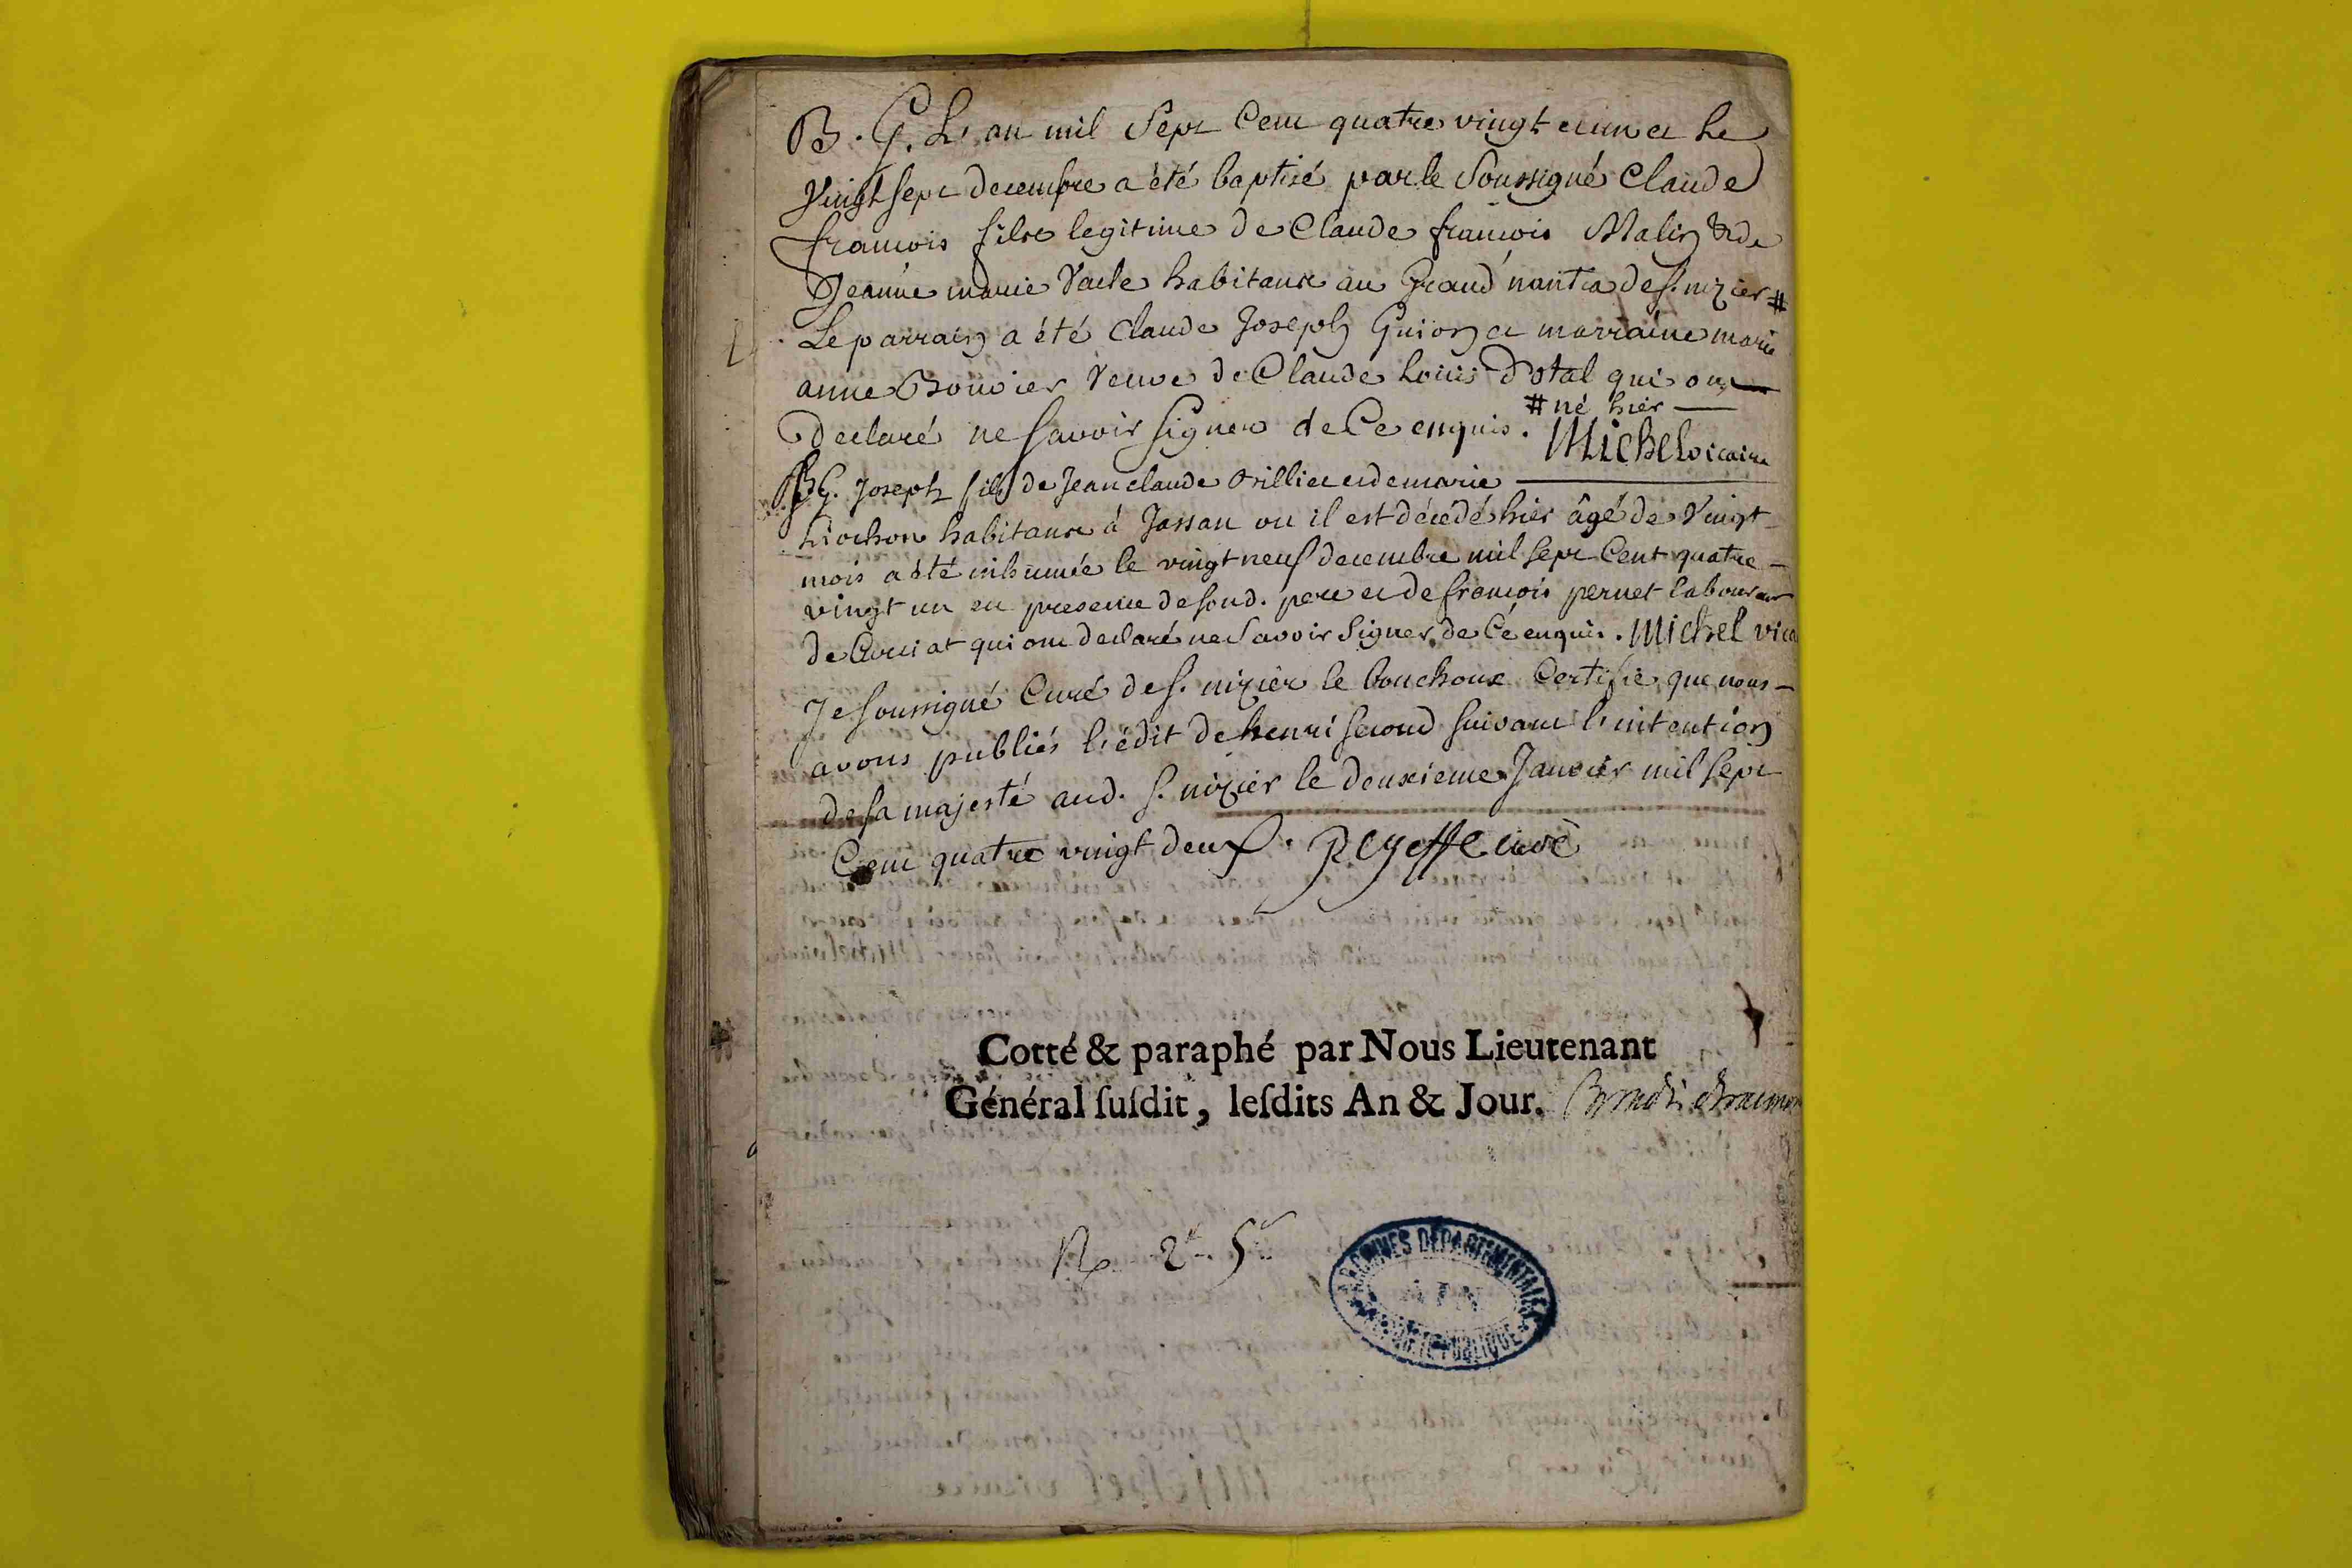 B. G. L'an mil sept cent quatre vingt et un et le
vingt sept decembre a été baptisé par le soussigné Claude
francois fils legitime de Claude francois Malin & de
Jeanne marie Vacle habitans au Grand nanta de s. nizier #
Le parrain a été Claude Joseph Guion et marraine marie
anne Bouvier veuve de Claude Louis Dotal qui ont
# né hier
declaré ne savoir signer de Ce enquis. Michel vicaire
B G. Joseph fils de Jean claude et de marie
habitans à Jassan ou il est décédé hier âgé de vingt
mois a été inhumée le vingt neuf decembre mil sept Cent quatre
vingt un en presence de sond. pere et de francois pernet laboureur
de Curciat qui ont declaré ne savoir signer de Ce enquis. Michel vica
Je soussigné Curé de s. nizier le bouchoux Certifie que nous
avons publiés l'édit de henri second suivant l'intention
de sa majesté aud. s. nizier le deuxieme Janvier mil sept
Cent quatre vingt deux. curé
Cotté & paraphé par Nous Lieutenant
Général ſuſdit, leſdits An & Jour.
ARCHIVES DÉPARTEMENTALES
AIN